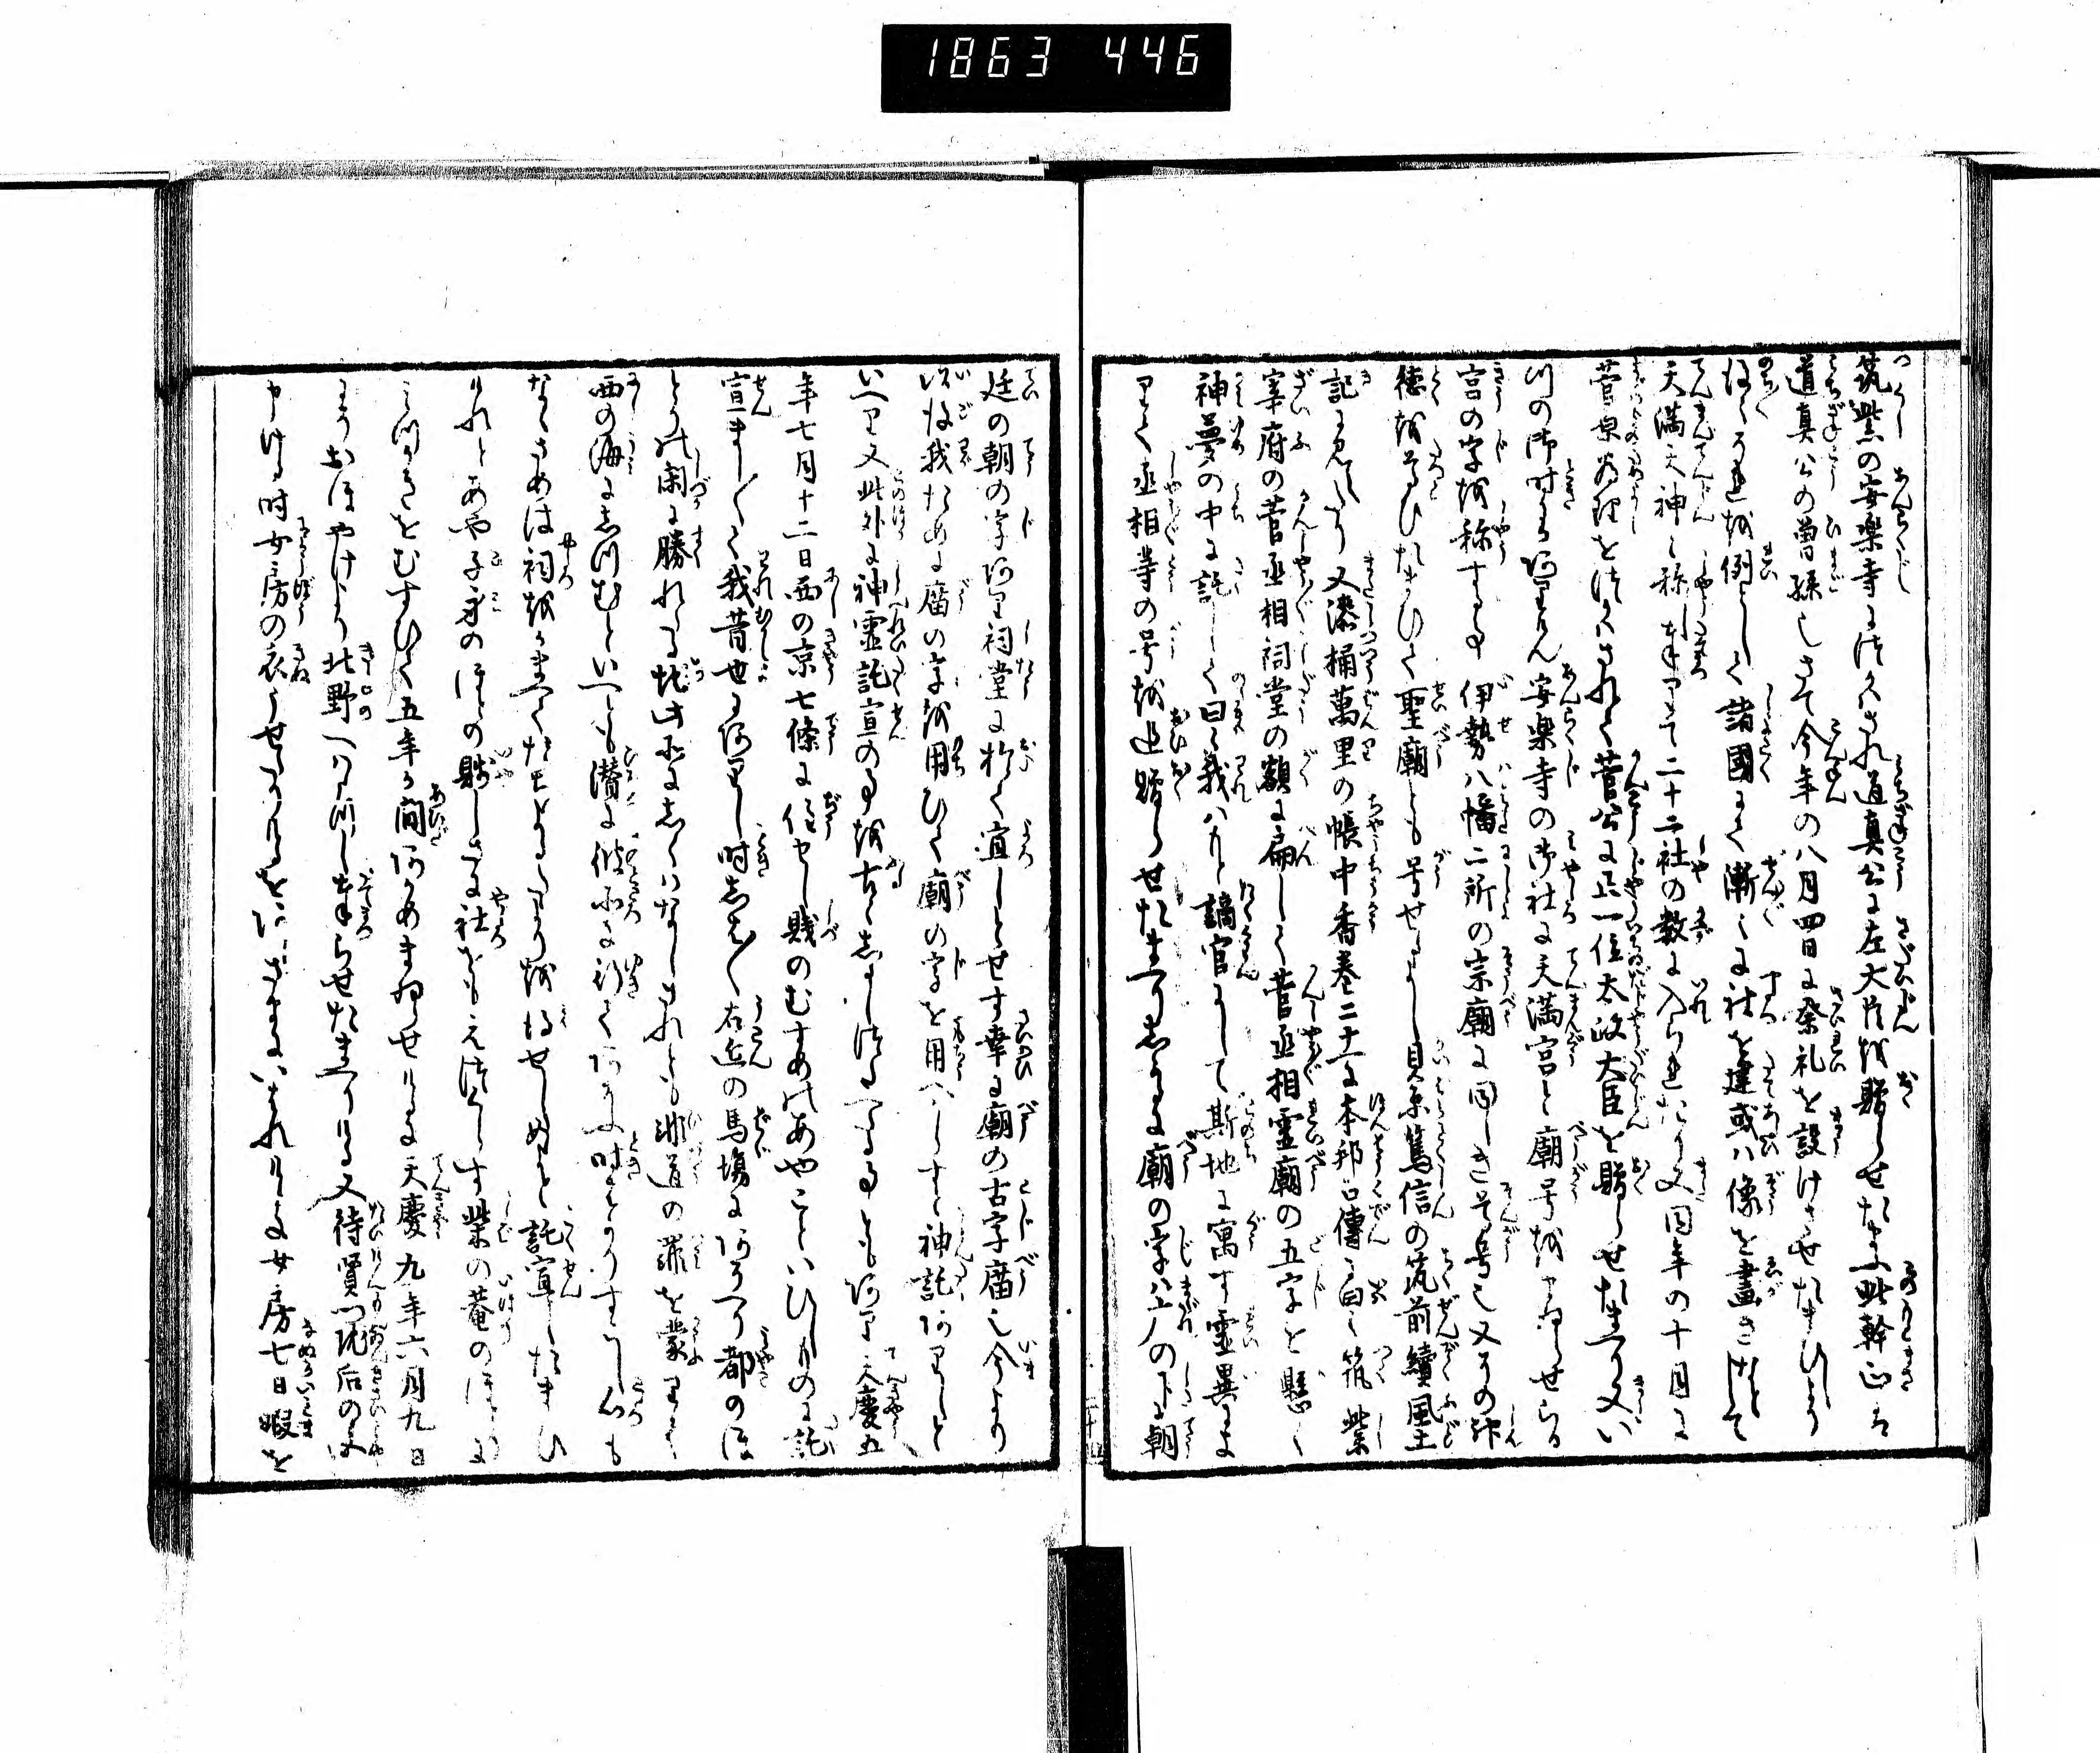 1863 446
筑紫の安楽寺につかはされ道真公に左大臣を贈らせたまふ此幹正は
道真公の曽孫也さて今年の八月四日に祭礼を設けさせたまひしより
のち是を例として諸國にて漸々に社を建或ハ像を畫きなどして
天満天神と称し奉りて二十二社の数に入られたり又同年の十月に
菅原為理をつかはされて菅公に正一位太政大臣を贈らせたまへり又い
つの御時にかありけん安楽寺の御社に天満宮と廟号をまゐらせらる
宮の字を称する事伊勢八幡二所の宗廟に同しき尊号也又その神
徳を尊ひたまひて聖廟とも号せり貝原篤信の筑前續風土
記に見えたり又漆桶萬里の帳中香巻二十一に本邦古傳に曰く筑紫
宰府の菅丞相祠堂の額に扁して菅丞相霊廟の五字を懸く
神夢の中に託して曰く我ハもと謫官にして斯地に寓す霊異に
よりて丞相等の号を追贈らせたまへりしかるに廟の字ハ广の下に朝
廷の朝の字あり祠堂に於て宜しからす幸に廟の古字庿也今より
以後我ために庿の字を用ひて廟の字を用へからすと神託ありしと
いへり又此外に神霊託宣の事を古く志るしつたへたる事ともあり天慶五
年七月十二日西の京七條に住せし賎のむすめのあやこといひしものに託
宣ましまして我昔世にありし時しば〱右近の馬場にあそへり都のほ
とりの閑に勝れたる地此所にしくハなしされとも非道の罪を蒙りて
西の海にしつむといへとも潜に彼所に行てあそふ時すこしすゝしく心も
なくさめは祠をかまへてたちよるたよりを得せしめよと託宣したまひ
けれとあや子身のほとの賎しさに社をもえつくらす柴の菴のほとりに
みつかきをむすひて五年か間あかめまゐらせけるに天慶九年六月九日
にそおほやけより北野へうつし奉らせたまへりける又待賢門院后の宮と
申ける時女房の衣うせたりけるをにさまにいはれけれは女房七日暇を